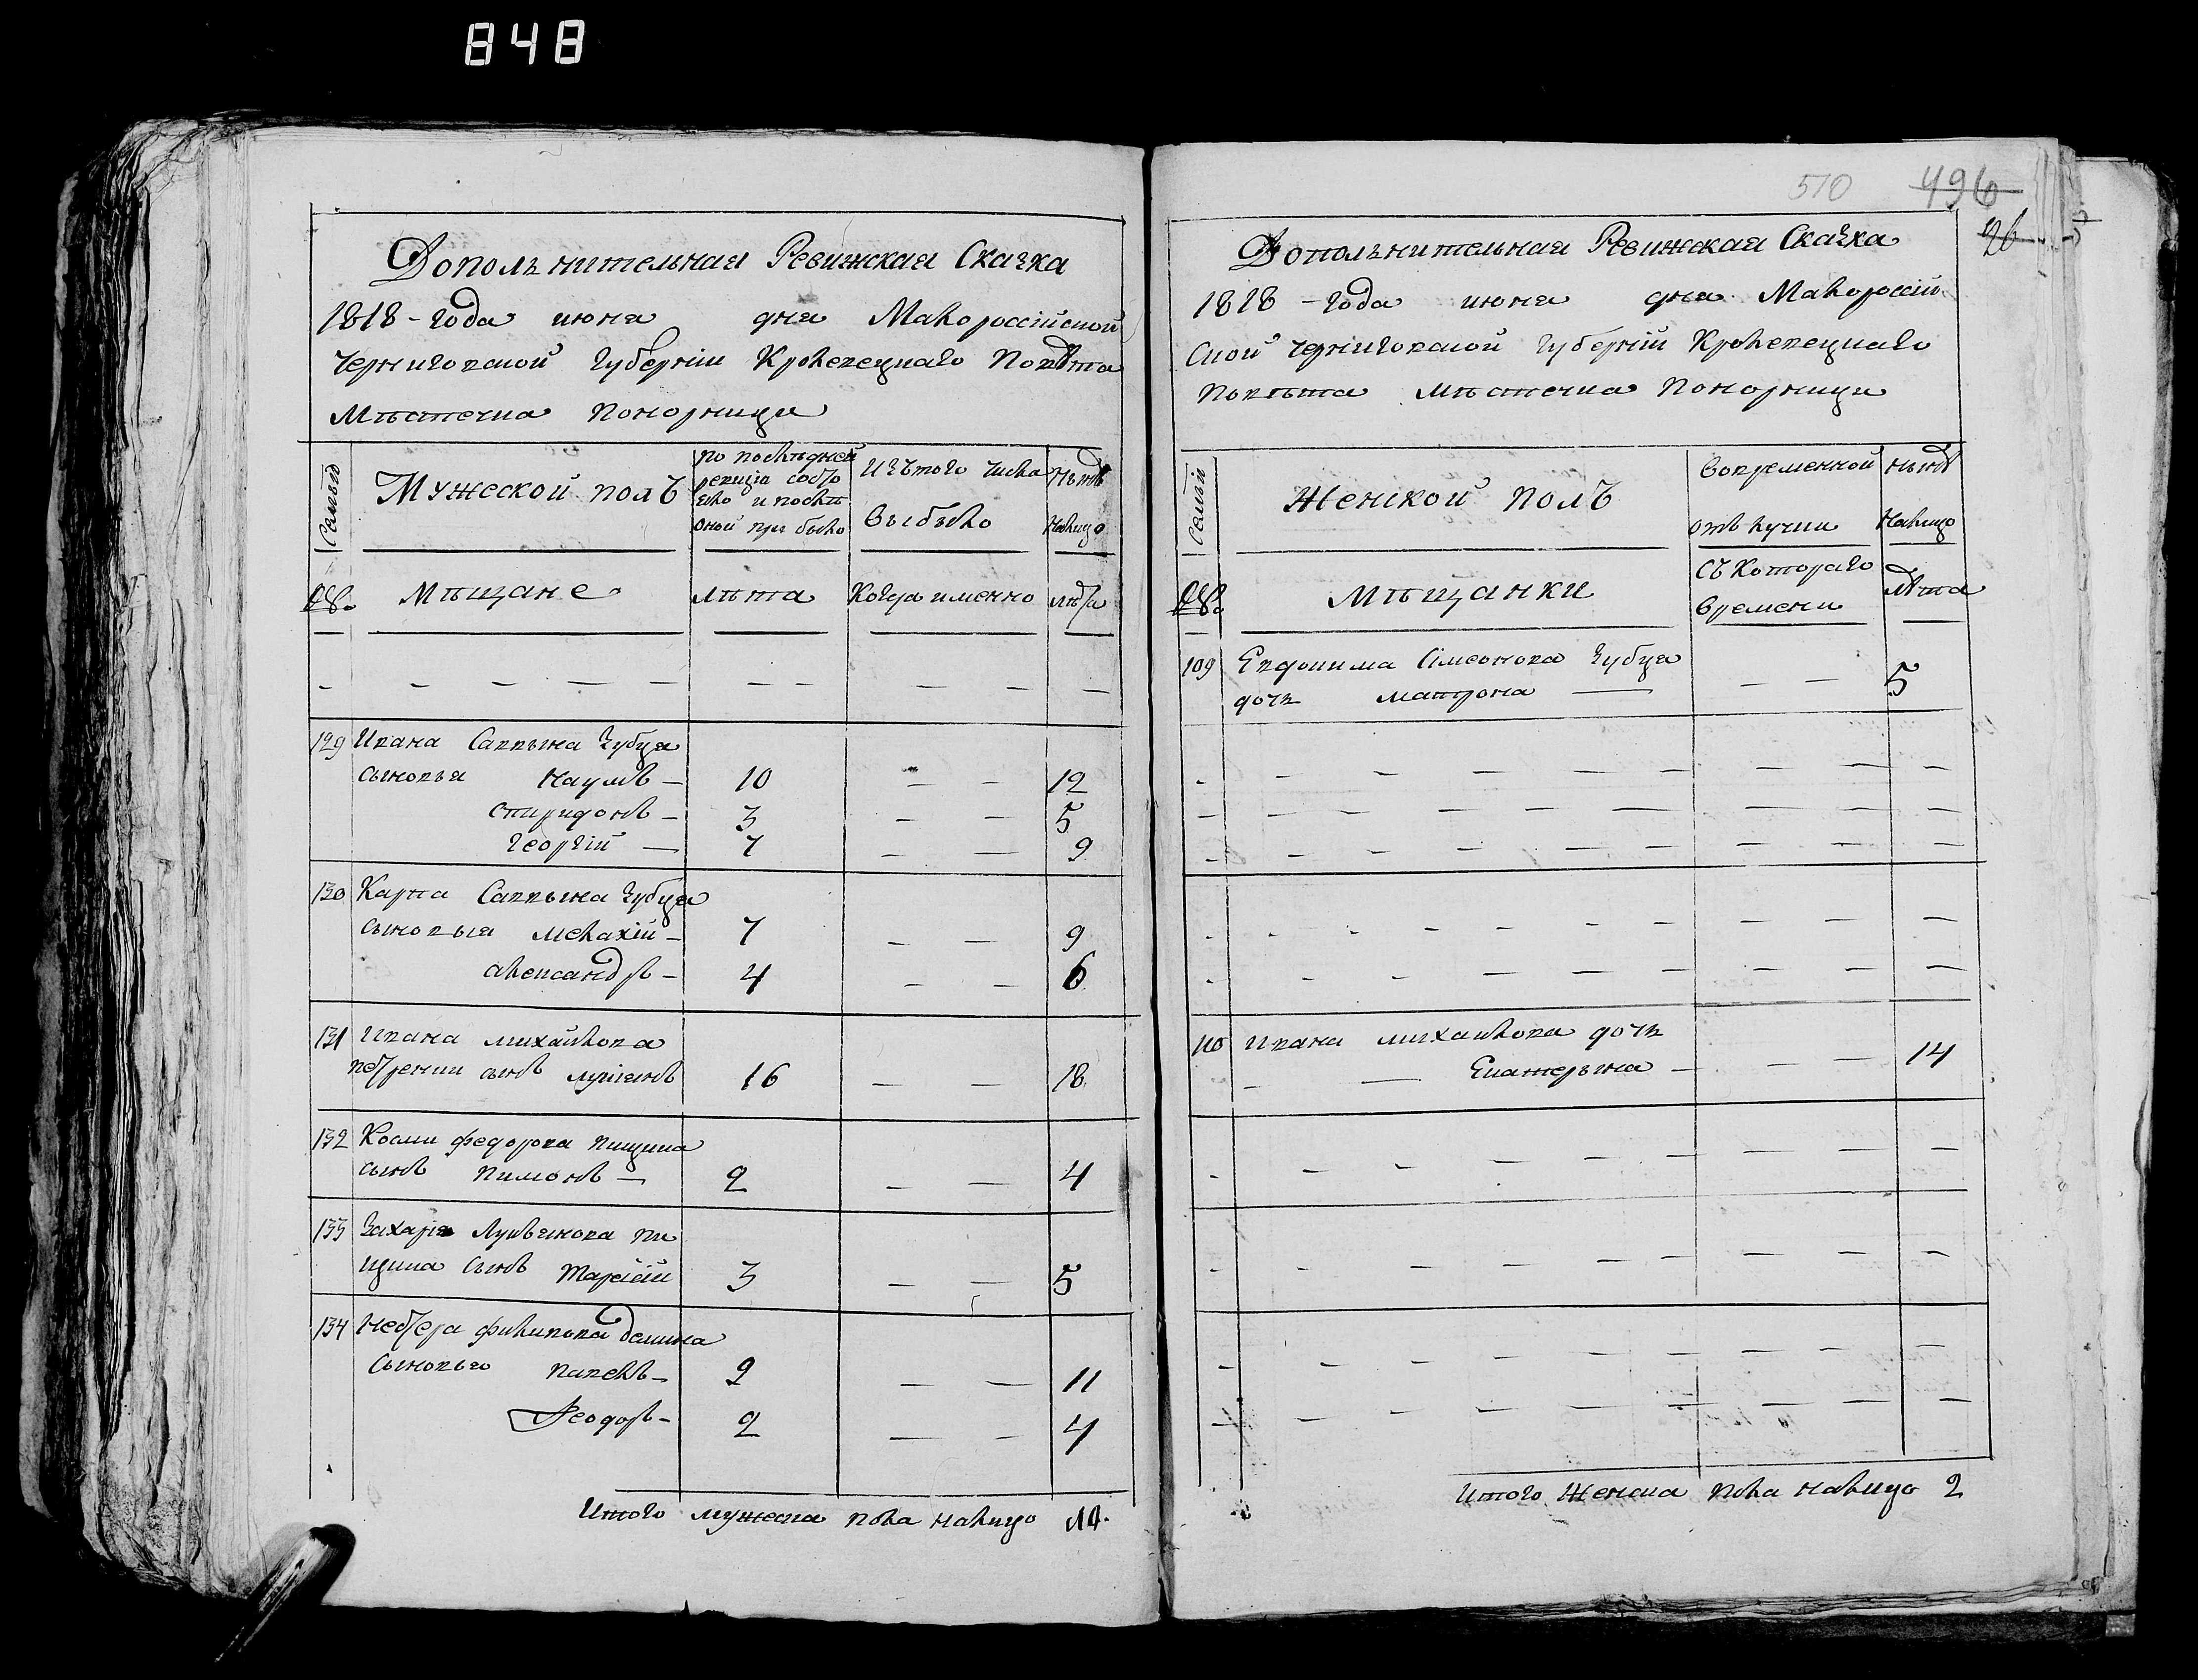 848
Дополънительная Ревижская Сказка
1818-года июня дня Малороссійской
Черниговской Губерніи Кролевецкаго Повѣта
Мѣстечка Понорници
Семьи
Мужеской полъ
по послѣдней
ревизіи состо
яло и послѣ
оной при было
Изътого числа
выбыло
Нынѣ
налицо
№.
Мѣщане
лѣта
Когда именно
лѣта
129 Ивана Саввына Зубца
сыновья Наумъ — 10 — — 12
Спиридонъ — 3 — — 5
Георгій — 7 — — 9
130 Карпа Саввына Зубца
сыновья Мелахій — 7 — — 9
александръ — 4 — — 6
131 Ивана михайлова
сынъ 16 — — 18
132 Космы федорова пищика
сынъ Пимонъ — 2 — — 4
133 Захарія Лукьянова пи
щика сынъ Тарасій 3 — — 5
134 Нестера филипова
сыновья павелъ — 9 — — 11
Ѳеодоръ — 2 — — 4
Итого мужеска пола налицо 14.
510 496
26
Дополънительная Ревижская Сказка
1818 - года июня дня Малороссій
ской Черниговской Губерніи Кролевецкаго
Повѣта Мѣстечка Понорници
Семьи
Женской полъ
вовременной
отлучки
Нынѣ
Налицо
№.
Мѣщанки
съ Котораго
времени
лѣта
109 Евдокима Сімеонова Зубца
дочь матрона — — — 5
110 Ивана михайлова дочь
— — Екатерина — — — 14
Итого Женска пола налицо 2